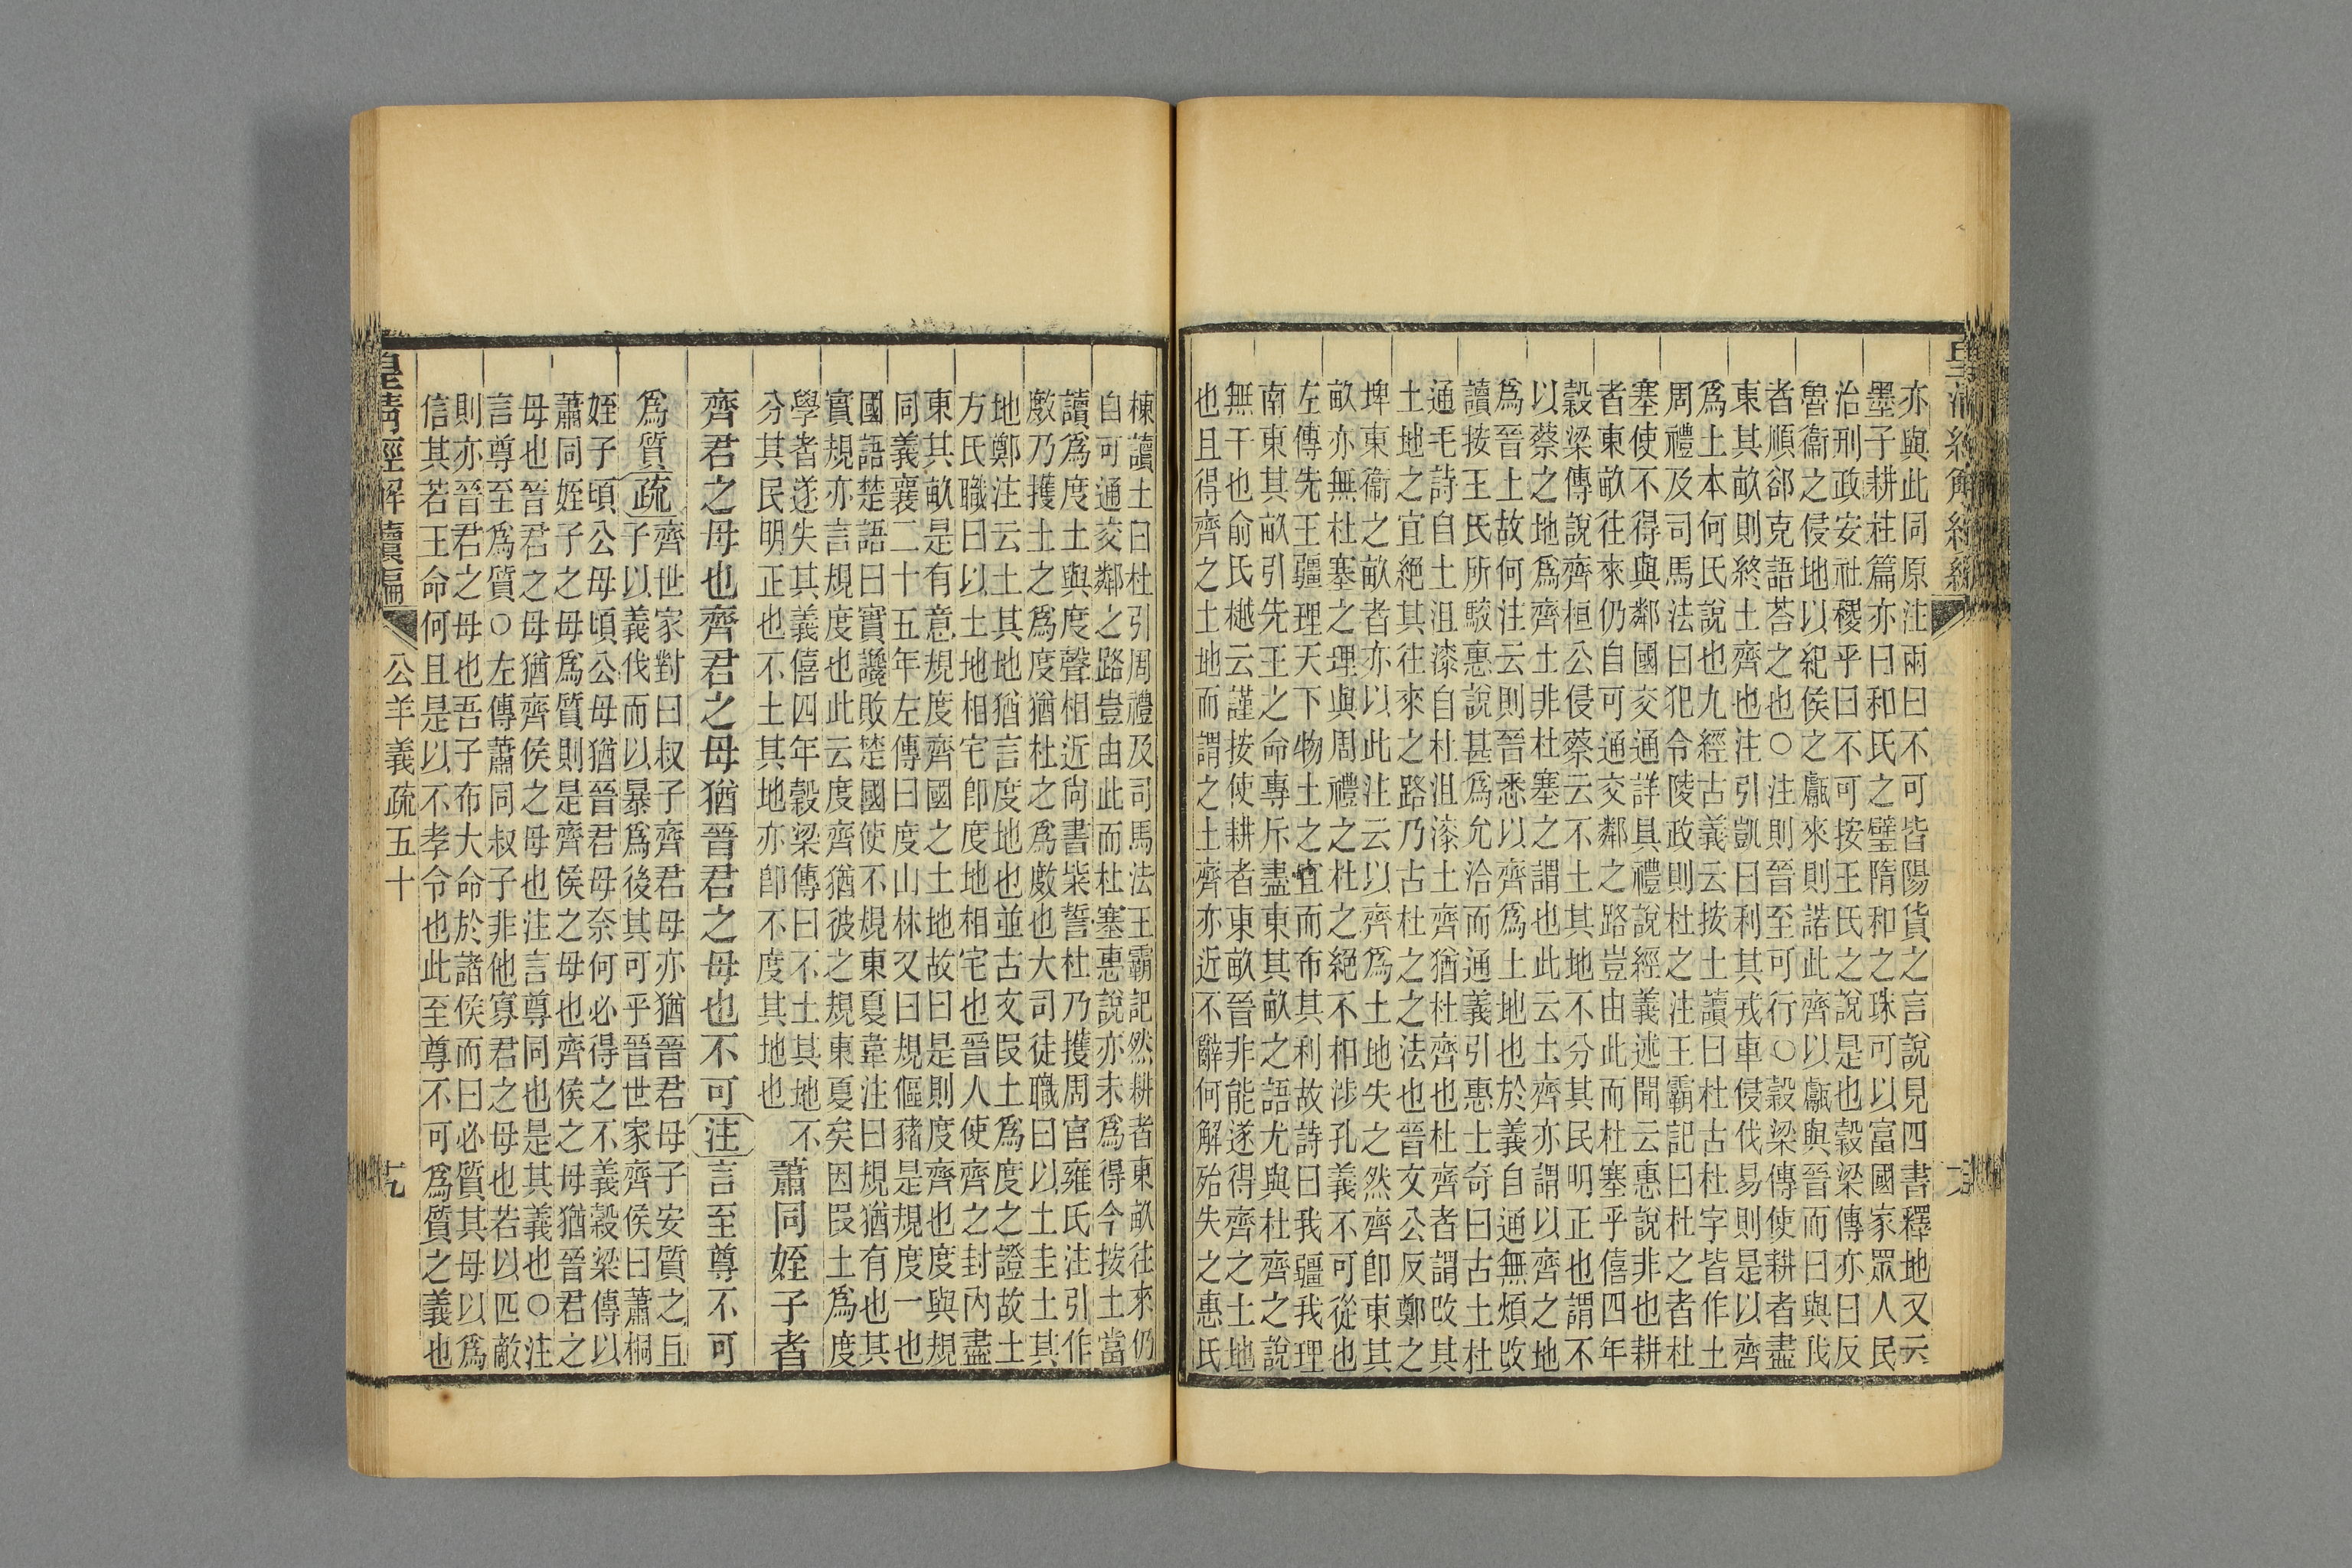 皇清經解續編
亦與此同原注兩曰不可皆陽貨之言說見四書釋地又云
墨子耕柱篇亦曰和氏之璧隋和之珠可以富國家眾人民
治刑政安社稷乎曰不可按王氏之說是也穀梁傳亦曰反
魯衞之侵地以紀侯之甗來則諾此齊以甗與晉而曰與我
者順郤克語荅之也○注則晉至可行○穀梁傳使耕者盡
東其畝則終土齊也注引凱曰利其戎車侵伐易則是以齊
爲土本何氏說也九經古義云按土讀曰杜古杜字皆作土
周禮及司馬法曰犯令陵政則杜之注王霸記曰杜之者杜
塞使不得與鄰國交通詳具禮說經義述聞云惠說非也耕
者東畝往來仍自可通交鄰之路豈由此而杜塞乎僖四年
穀梁傳說齊桓公侵蔡云不土其地不分其民明正也謂不
以蔡之地爲齊土非杜塞之謂也此云土齊亦謂以齊之地
爲晉土故何注云則晉悉以齊爲土地也於義自通無煩改
讀按王氏所駮惠說甚爲允洽而通義引惠士奇曰古土杜
通毛詩自土沮漆自杜沮漆土齊猶杜齊也杜齊者謂改其
土地之宜絕其往來之路乃古杜之之法也晉文公反鄭之
埤東衞之畝者亦以此注云以齊爲土地失之然齊卽東其
畝亦無杜塞之理與周禮之杜之絕不相涉孔義不可從也
左傳先王疆理天下物土之宜而布其利故詩曰我疆我理
南東其畝引先王之命專斥盡東其畝之語尤與杜齊之說
無干也俞氏樾云謹按使耕者東畝晉非能遂得齊之土地
也且得齊之土地而謂之土齊亦近不辭何解殆失之惠氏
棟讀土曰杜引周禮及司馬法王霸記然耕者東畝往來仍
自可通交鄰之路豈由此而杜塞惠說亦未爲得今按土當
讀爲度土與度聲相近尙書柴誓杜乃擭周官雍氏注引作
𢾖乃擭土之爲度猶杜之爲𢾖也大司徒職曰以土圭土其
地鄭注云土其地猶言度地也並古文叚土爲度之證故土
方氏職曰以土地相宅卽度地相宅也晉人使齊之封內盡
東其畝是有意規度齊國之土地故曰是則度齊也度與規
同義襄二十五年左傳曰度山林又曰規偃豬是規度一也
國語楚語曰實讒敗楚國使不規東夏韋注曰規猶有也其
實規亦言規度也此云度齊猶彼之規東夏矣因叚土爲度
學者遂失其義僖四年穀梁傳曰不土其地不
分其民明正也不土其地亦卽不度其地也
蕭同姪子者
齊君之母也齊君之母猶晉君之母也不可注言至尊不可
爲質疏
齊世家對曰叔子齊君母亦猶晉君母子安質之且
子以義伐而以暴爲後其可乎晉世家齊侯曰蕭桐
姪子頃公母頃公母猶晉君母奈何必得之不義穀梁傳以
蕭同姪子之母爲質則是齊侯之母也齊侯之母猶晉君之
母也晉君之母猶齊侯之母也注言尊同也是其義也○注
言尊至爲質○左傳蕭同叔子非他寡君之母也若以匹敵
則亦晉君之母也吾子布大命於諸侯而曰必質其母以爲
信其若王命何且是以不孝令也此至尊不可爲質之義也
皇清經解續編
公羊義疏五十
十九